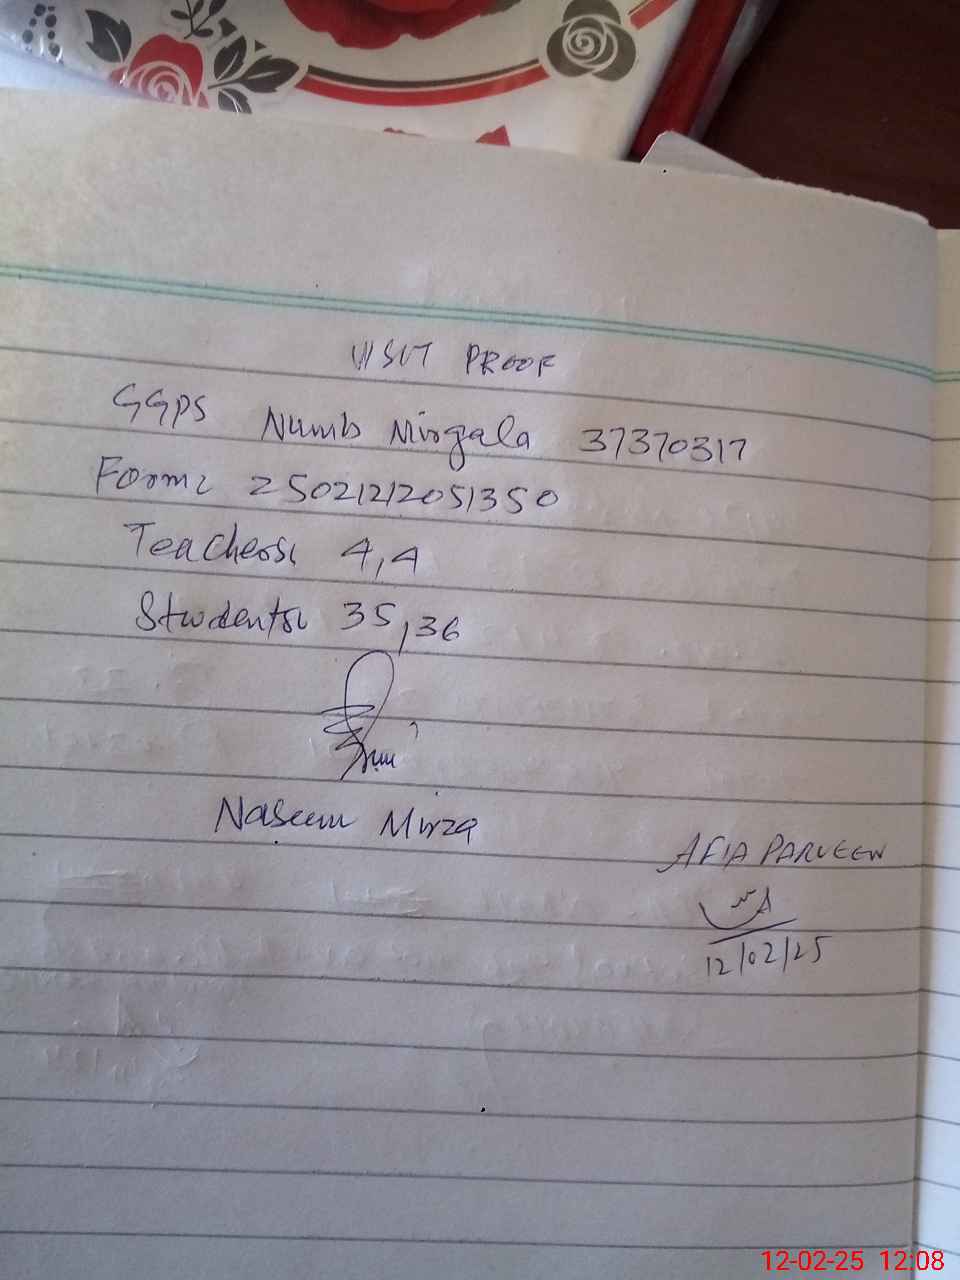 VISIT PROOF
GGPS Numb Mirgala 37370317
Form: 25021212051350
Teachers: 4,4
Students: 35,36
Naseem Mirza
AFIA PARVEEN
12/02/25
12-02-25 12:08